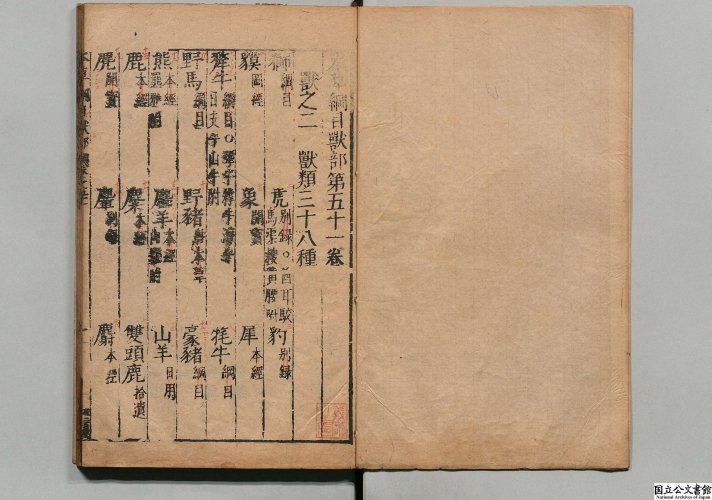 本草綱目獸部第五十一卷
獸之二 獸類三十八種
獅綱目 虎別錄○酋耳駮 豹別錄
馬渠
腰附
貘圖經 象開寶 犀本經
犛牛綱目○ 牦牛綱目
野馬綱目 野豬 豪豬綱目
熊本經 羊本經 山羊日用
鹿本經 麋本經 雙頭鹿拾遺
麂開寶 麞別錄 麝本經
国立公文書館
National Archives of Japan